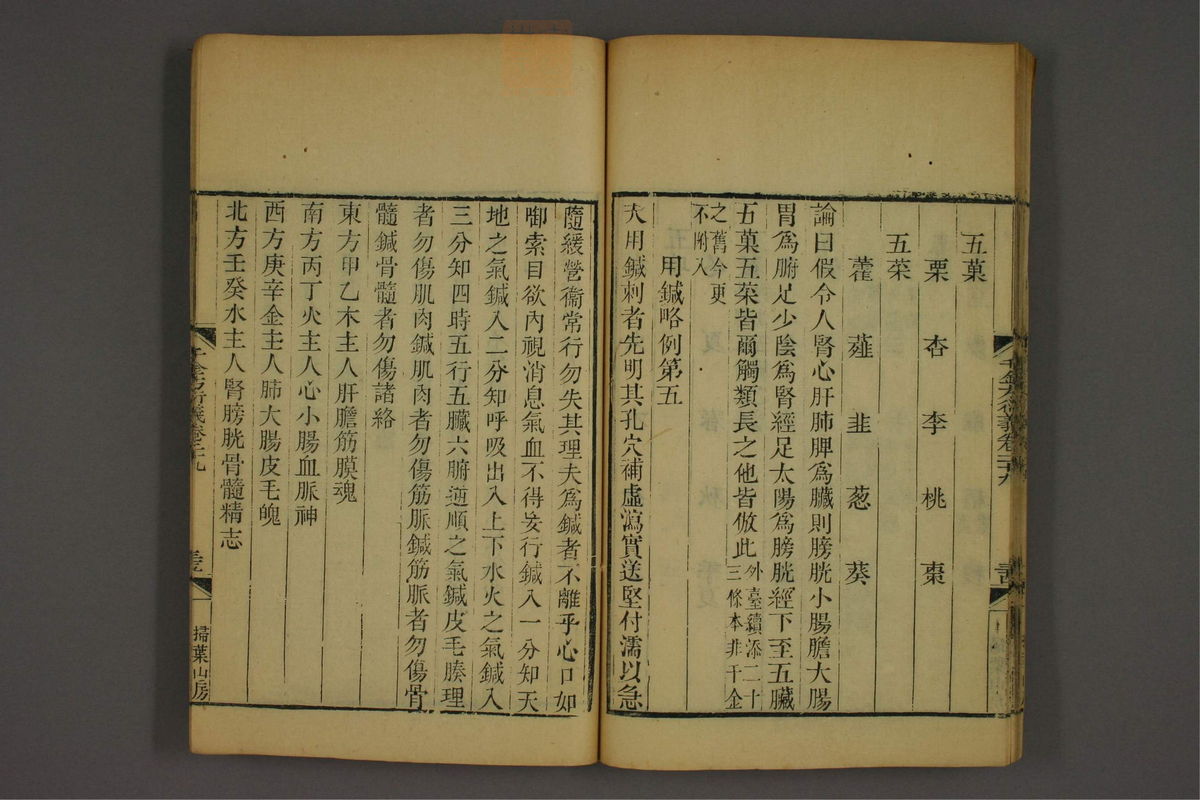 五菓
栗　杏　李　桃　棗
五菜
藿　薤　韭　葱　葵
論曰假令人腎心肝肺脾為臟則膀胱小腸膽大腸
胃為腑足少陰為腎經足太陽為膀胱經下至五臟
五菓五菜皆爾觸類長之他皆倣此外臺續添二十
三條本非千金
之舊今更
不附入
用鍼略例第五
夫用鍼刺者先明其孔穴補虛瀉實送堅付濡以急
隨緩營衞常行勿失其理夫為鍼者不離乎心口如
啣索目欲內視消息氣血不得妄行鍼入一分知天
地之氣鍼入二分知呼吸出入上下水火之氣鍼入
三分知四時五行五臟六腑逆順之氣鍼皮毛腠理
者勿傷肌肉鍼肌肉者勿傷筋脈鍼筋脈者勿傷骨
髓鍼骨髓者勿傷諸絡
東方甲乙木主人肝膽筋膜魂
南方丙丁火主人心小腸血脈神
西方庚辛金主人肺大腸皮毛魄
北方壬癸水主人腎膀胱骨髓精志
千金方衍義卷二十九
掃葉山房